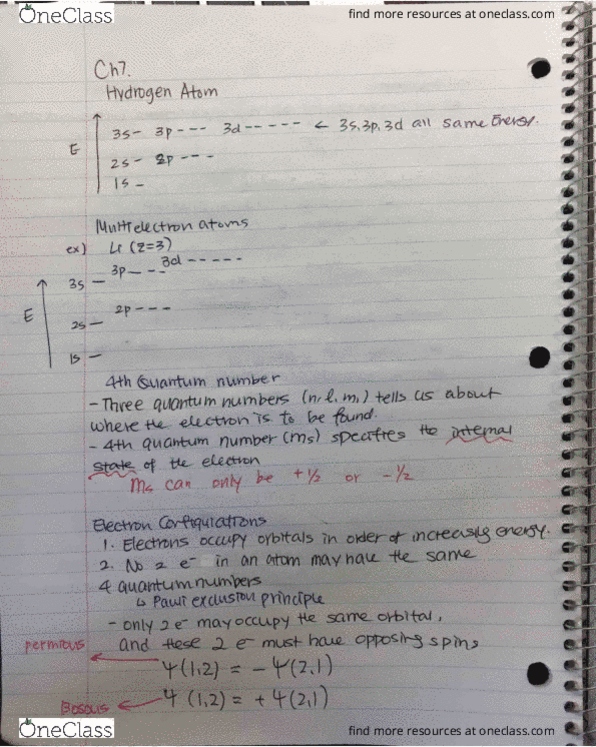 OneClass
find more resources at oneclass.com
Ch7.
Hydrogen Atom
E
3s- 3p --- 3d ----- ← 3s,3p,3d all same Energy.
2s- 2p ---
1s -
Multielectron atoms
ex) Li (Z=3)
3d -----
3p ---
3s -
E
2p ---
2s -
1s -
4th Quantum number
- Three quantum numbers (n, l, m,) tells us about
where the electron is to be found.
- 4th quantum number (ms) specifies the internal
state of the electron
Ms can only be +½ or -½
Electron Configurations
1. Electrons occupy orbitals in order of increasing energy.
2. No 2 e⁻ in an atom may have the same
4 quantum numbers
↳ Pauli exclusion principle
- only 2 e⁻ may occupy the same orbital,
and these 2 e⁻ must have opposing spins
fermions ← Ψ(1,2) = -Ψ(2,1)
Bosons ← Ψ(1,2) = +Ψ(2,1)
OneClass
find more resources at oneclass.com